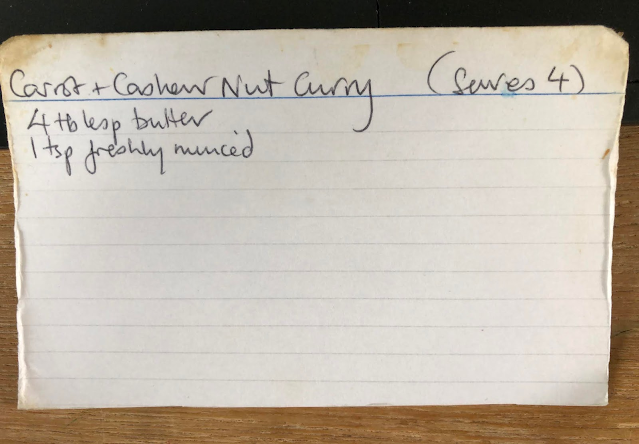 Carrot + Cashew Nut Curry (Serves 4)
4 tblesp butter
1 tsp freshly minced